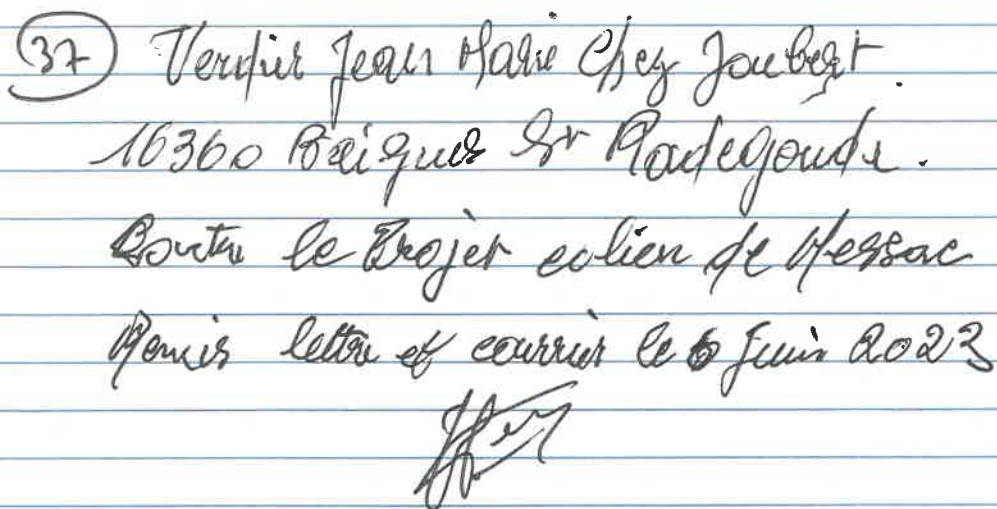 37 Verdier Jean Marie Chez Joubert.
16360 Baignes St Radegonde.
Contre le Projet eolien de Messac
Remis lettre et courrier le 6 Juin 2023